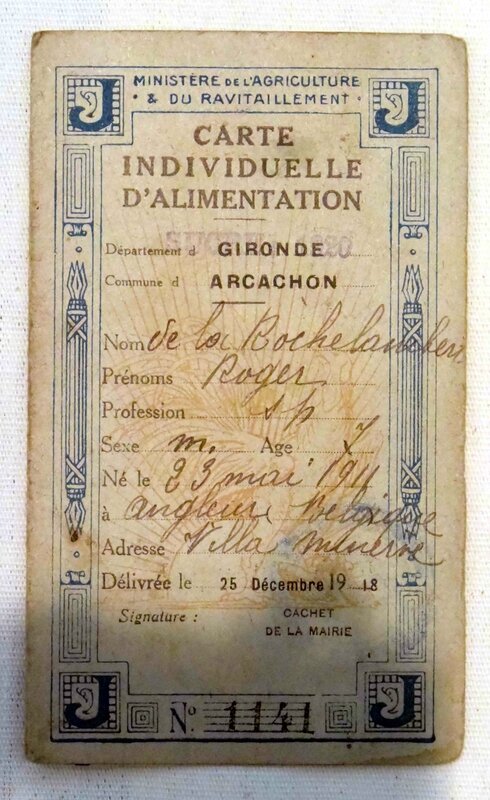 J MINISTÈRE DE L'AGRICULTURE J
& DU RAVITAILLEMENT
CARTE
INDIVIDUELLE
D'ALIMENTATION
SUCRE 1920
Département d GIRONDE
Commune d ARCACHON
Nom de la Rochelambert
Prénoms Roger
Profession sp
Sexe m. Age 7
Né le 23 mai 1911
à angleur Belgique
Adresse Villa Minerve
Délivrée le 25 Décembre 19 18
Signature : CACHET
DE LA MAIRIE
J Nº 1141 J